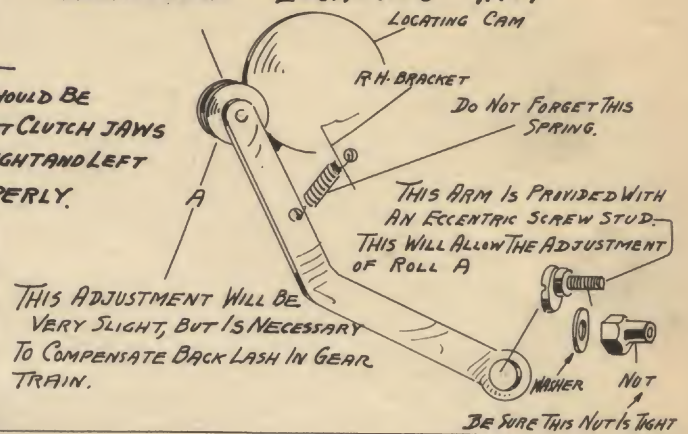 LOCATING CAM
R.H. BRACKET
DO NOT FORGET THIS
SPRING.
HOULD BE
T CLUTCH JAWS
GHT AND LEFT
PERLY.
A
THIS ARM IS PROVIDED WITH
AN ECCENTRIC SCREW STUD.
THIS WILL ALLOW THE ADJUSTMENT
OF ROLL A
THIS ADJUSTMENT WILL BE
VERY SLIGHT, BUT IS NECESSARY
TO COMPENSATE BACK LASH IN GEAR
TRAIN.
WASHER
NUT
BE SURE THIS NUT IS TIGHT